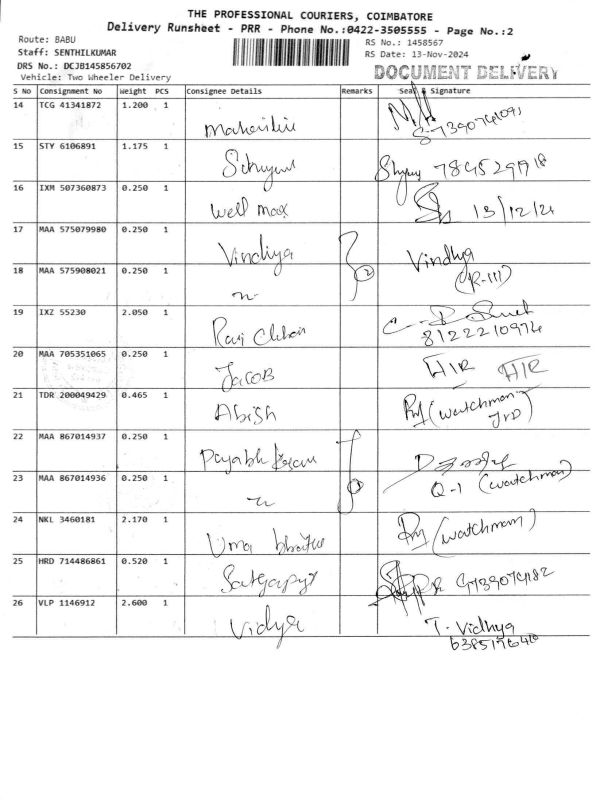 THE PROFESSIONAL COURIERS, COIMBATORE
Delivery Runsheet - PRR - Phone No.:0422-3505555 - Page No.:2
Route: BABU
Staff: SENTHILKUMAR
DRS No.: DCJB145856702
Vehicle: Two Wheeler Delivery
RS No.: 1458567
RS Date: 13-Nov-2024
DOCUMENT DELIVERY
S No Consignment No Weight PCS Consignee Details Remarks Seal & Signature
14 TCG 41341872 1.200 1
15 STY 6106891 1.175 1
16 IXM 507360873 0.250 1 well max 13/12/24
17 MAA 575079980 0.250 1 Vindiya Vindhya
18 MAA 575908021 0.250 1 2 (R-III)
19 IXZ 55230 2.050 1 Ravi 8122210974
20 MAA 705351065 0.250 1 Jacob H/R H/R
21 TDR 200049429 0.465 1 Abish (watchman)
22 MAA 867014937 0.250 1
23 MAA 867014936 0.250 1 Q-1 (watchman)
24 NKL 3460181 2.170 1 Uma (watchman)
25 HRD 714486861 0.520 1
26 VLP 1146912 2.600 1 Vidya T. Vidhya